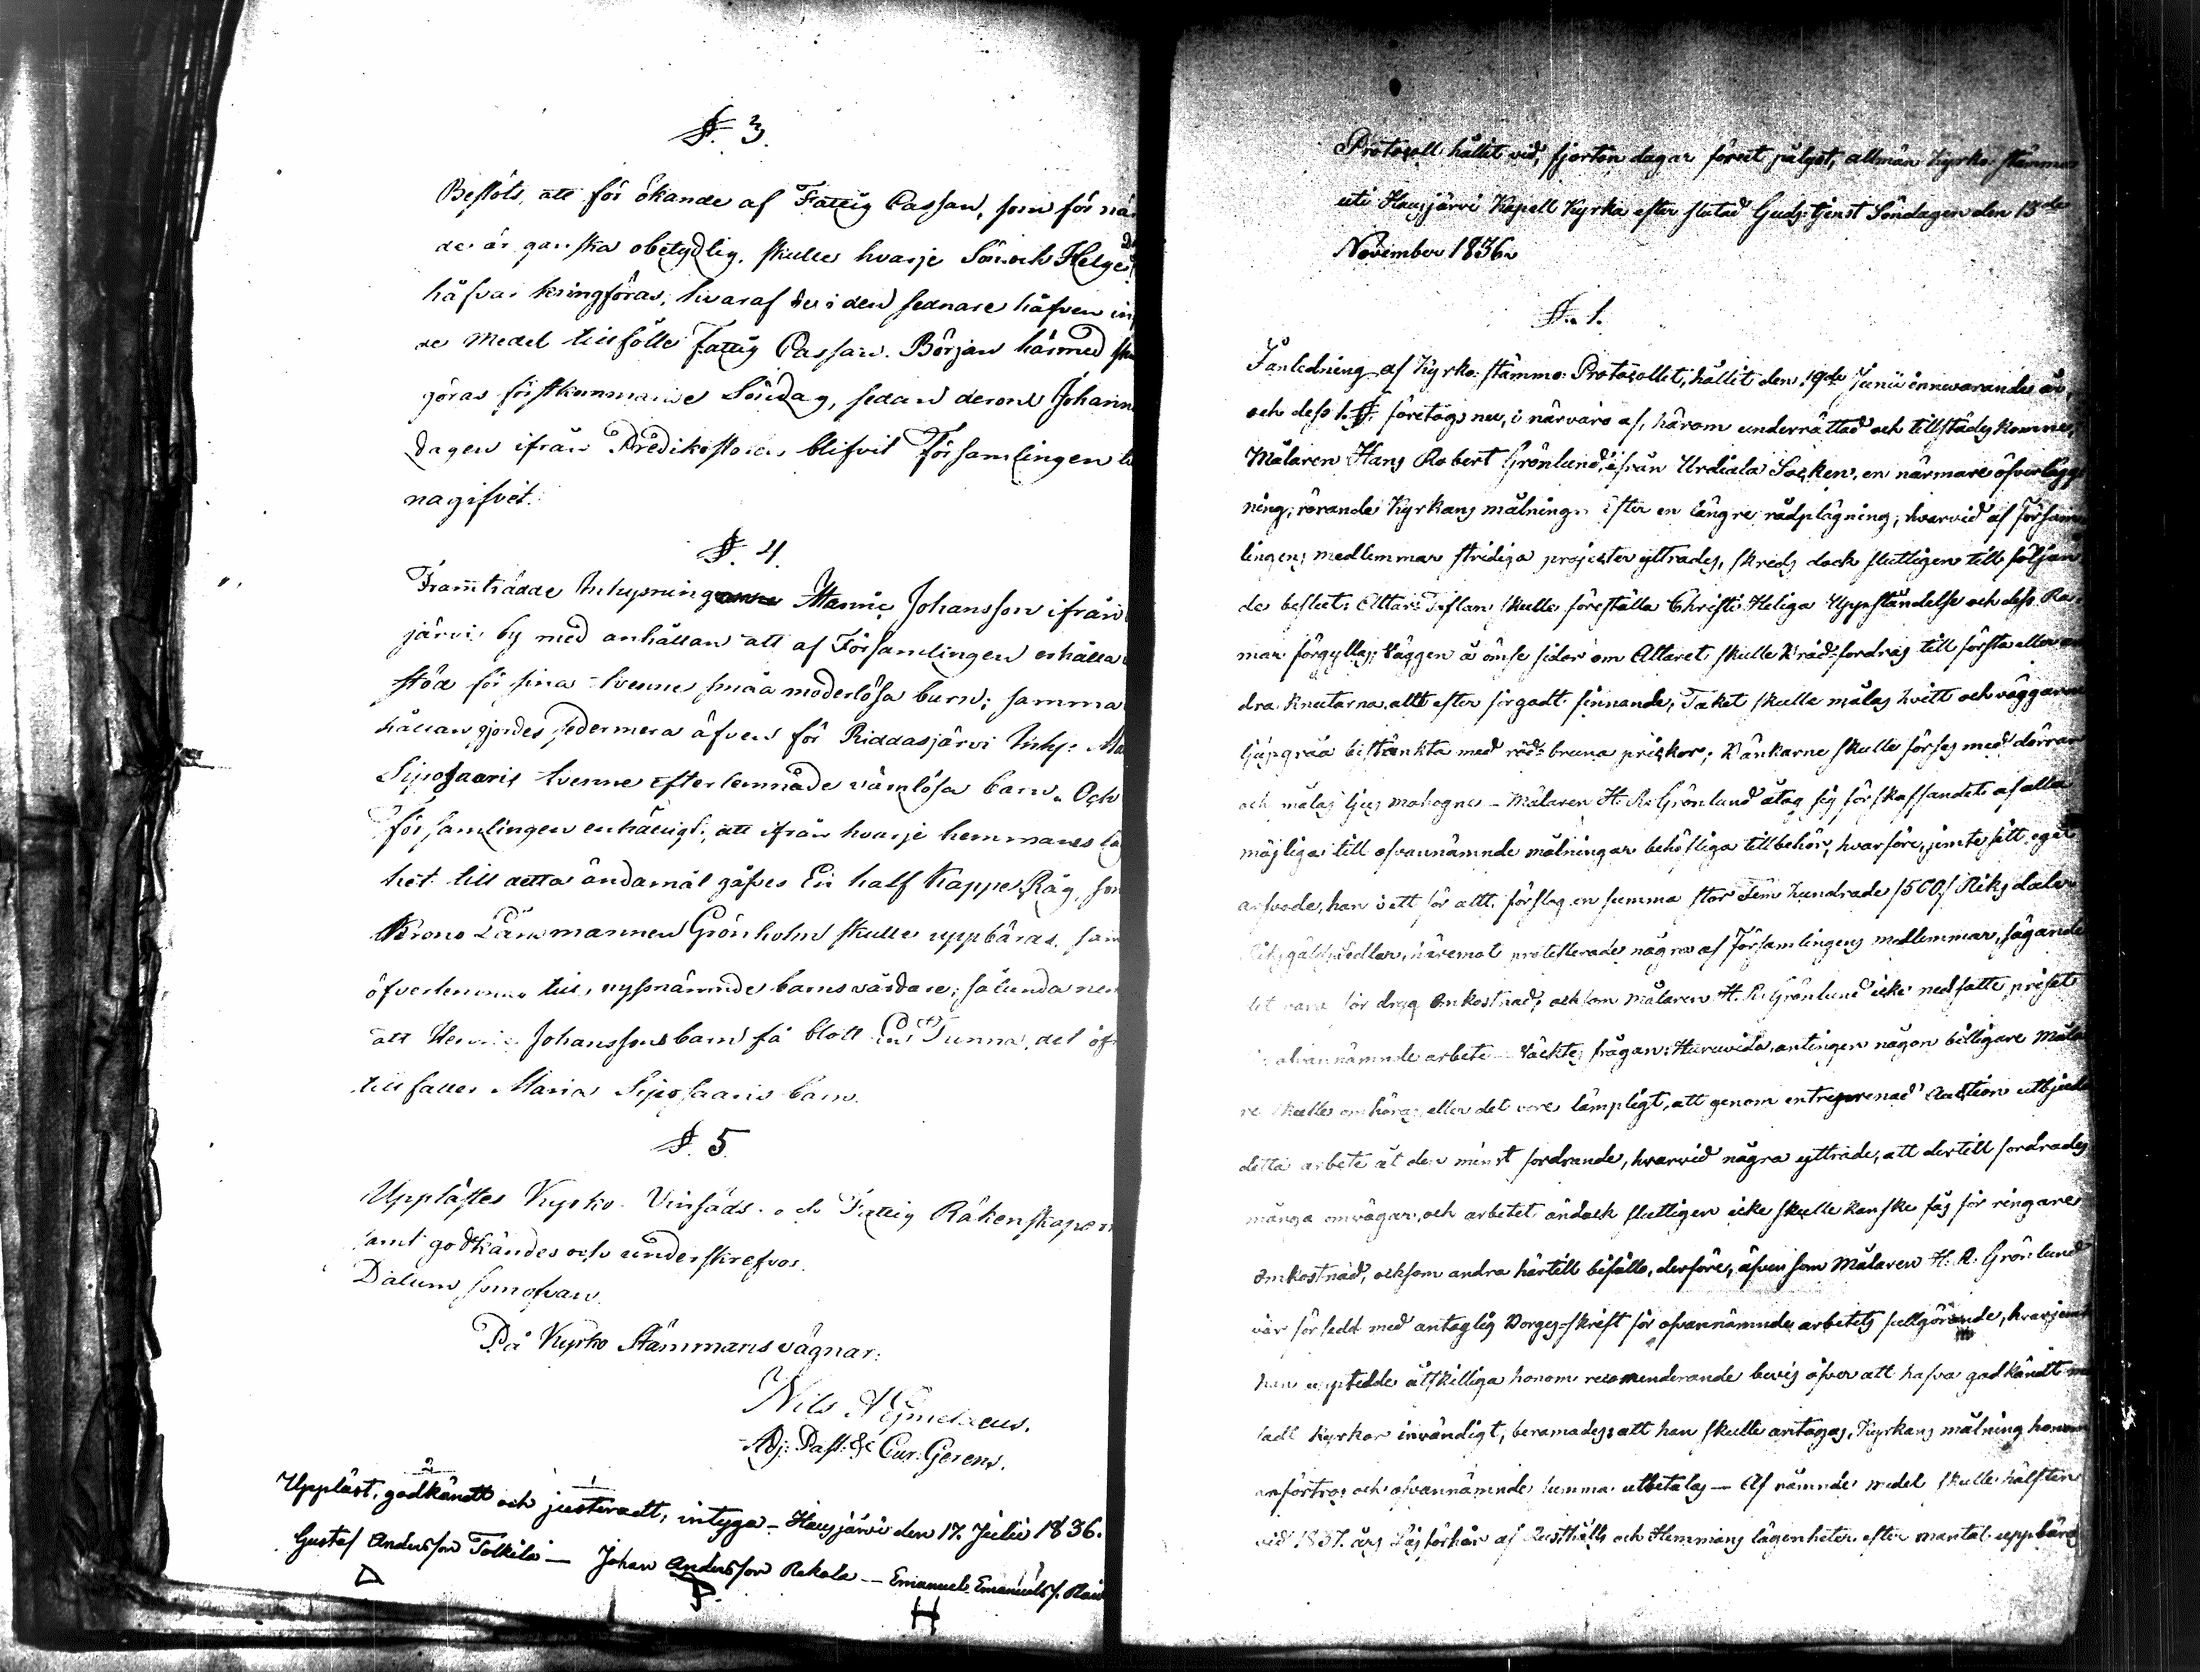 §. 3.
Beslöts, att för ökande af Fattig Cassan, som för när
de är ganska obetydlig, skulle hvarje Sön och Helgeda
håfvar kringföras, hvaraf de i den sednare håfven in
de Medel tillfölle Fattig Cassan. Början härmed sku
göras förstkommande Söndag, sedan derom Johann
dagen ifrån Predikostolen blifvit Församlingen
nagifvet.
§. 4.
Framträdde Inhysning Johansson ifrån
järvi by med anhållan att af Församlingen erhålla
stöd för sina tvenne små moderlösa barn; samma
hållan gjordes sedermera äfven för Riddasjärvi Inhys:
Siposaaris tvenne efterlemnade värnlösa barn. Och
församlingen enhälligt, att ifrån hvarje hemmans läg
het till detta ändamål gåfves En half Kappe Råg, som
Krono Länsmannen Grönholm skulle uppbäras, sam
öfverlemnas till nyssnämnde barns vårdare; sålunda
att Johanssons barn få blott En Tunna, det öf
tillfaller Maria Siposaaris barn.
§. 5
Upplästes Kyrko- Vinsäds- och Fattig Räkenskapern
samt godkändes och underskrefvos.
Datum som ofvan.
På Kyrko Stämmans vägnar:
Nils
Adj: Past: & Cur: Gerens.
Uppläst, godkändt och justeradt, intyga – Hausjärvi den 17. Julii 1836.
Gustaf Andersson Tolkila — Johan Andersson Rekola — Emanuel Emanuelss.
H
Protocoll hållit vid, fjorton dagar förut pålyst, allmän Kyrko-stämma
uti Hausjärvi Kapell Kyrka efter slutad Gudstjenst Söndagen den 13de
November 1836.
§. 1.
I anledning af Kyrko-stämmo-Protocollet, hållit den 19de Junii innevarande år,
och dess 1. §. företogs nu, i närvaro af, härom underrättad och tillstädes komne,
Målaren Hans Robert Grönlund, ifrån Urdiala Socken, en närmare öfverlägg
ning, rörande Kyrkans målning. Efter en längre rådplägning, hvarvid af Försam
lingens medlemmar stridiga projecter yttrades, skreds dock slutligen till följan
de beslut: Altar-Taflan skulle föreställa Christi Heliga Uppståndelse och dess Ra
mar förgyllas; Väggen å ömse sidor om Altaret skulle till första eller an
dra knutarna, allt efter godt finnande, Taket skulle målas hvitt och väggarne
ljusgråa bestänkta med röd-bruna prickor; Bänkarne skulle förses med dörrar
och målas ljus mahogne – Målaren H. R. Grönlund åtog sig förskaffandet af alla
möjliga till ofvannämnde målningar behöfliga tillbehör, hvarföre, jemte sitt eget
arfvode, han i ett för allt förslog en summa stor Fem hundrade /500/ Riksdaler
Riksgälds Sedlar, häremot protesterade några af Församlingens medlemmar, sägande
det vara för dryg omkostnad, och som Målaren H. R. Grönlund icke nedsatte priset
ofvannämnde arbete – Väcktes frågan: Huruvida antingen någon billigare Måla
re skulle anhöras eller det vore lämpligt, att genom entreprenad Auction utbjuda
detta arbete åt den minst fordrande, hvarvid några yttrade, att dertill fordrades
många omvägar, och arbetet ändock slutligen icke skulle kanske fås för ringare
omkostnad, och som andra härtill biföllo, derföre, äfvensom Målaren H. R. Grönlund
var försedt med antaglig Borges-skrift för ofvannämnde arbetets fullgörande, hvarjemte
han uppteedde åtskilliga honom recommenderande bevis öfver att hafva godkändt må
ladt Kyrkor invändigt, beramades att han skulle antagas, Kyrkans målning honom
anförtros och ofvannämnde summa utbetalas — Af nämnde medel skulle hälften
vid 1837. års af Rusthålls och Hemmans lägenheter efter mantal uppbäras